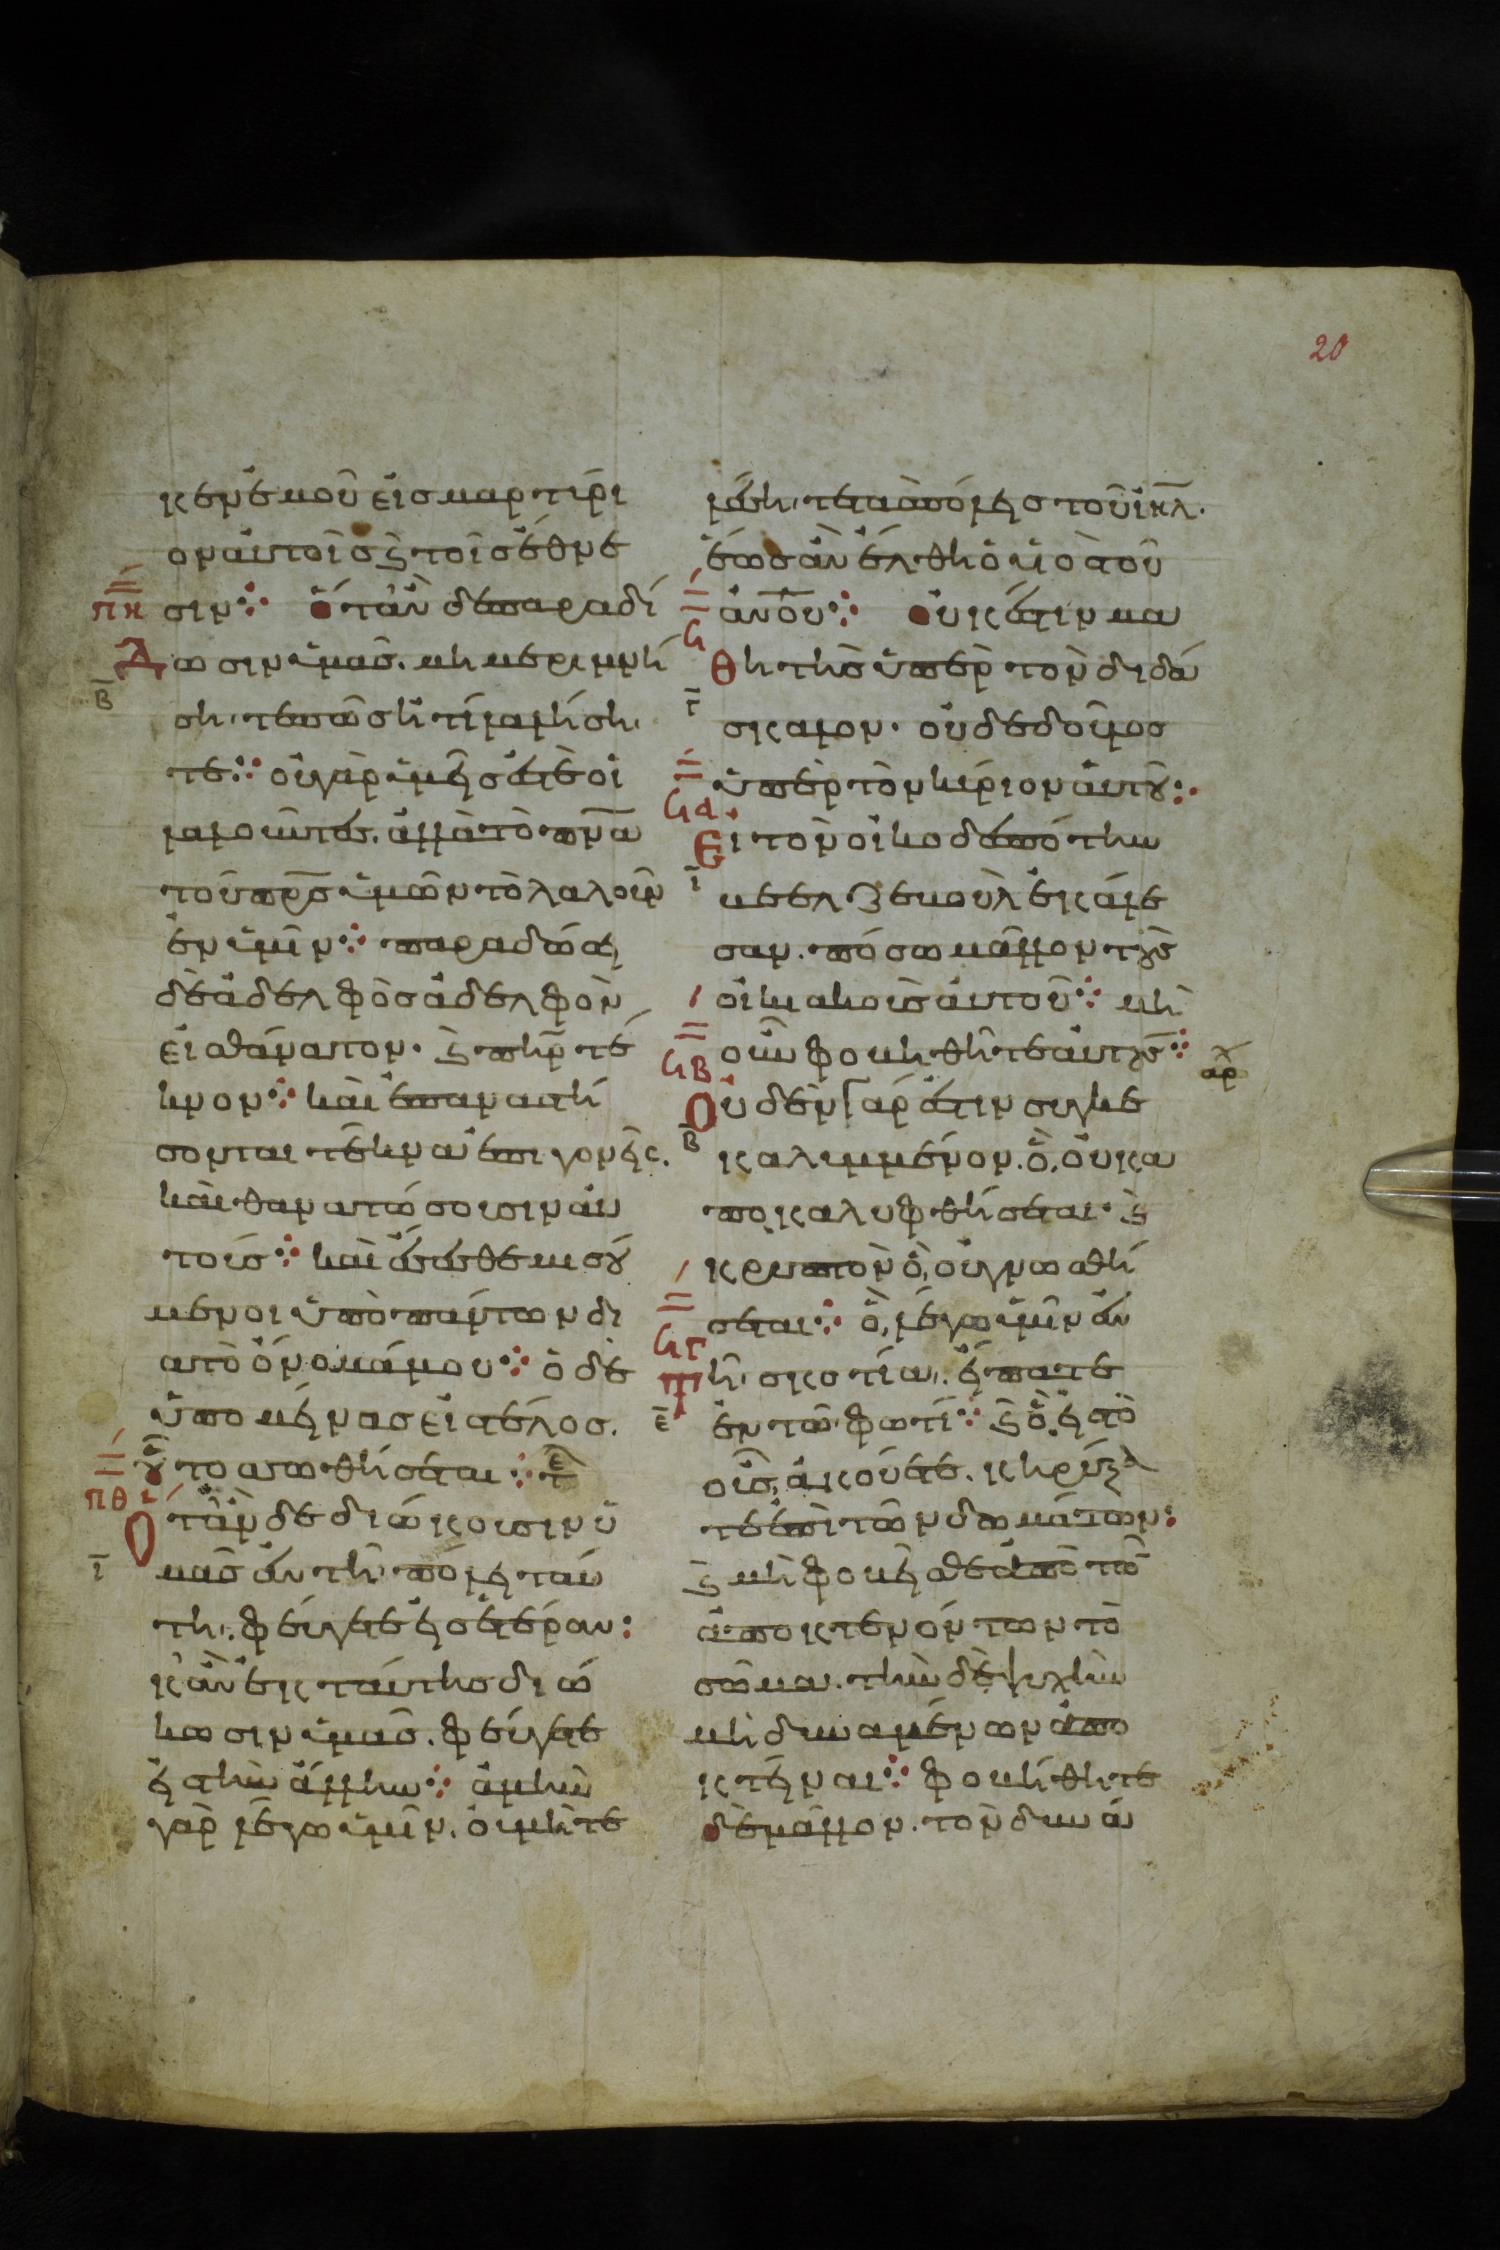 20
κενέμου εἰσ μαρτύρι
ον αὐτοῖσ ϗ τοῖσ ἔθνε
πη σιν ⁘ ὅτἂν δὲ παραδί
δωσιν ὑμᾶσ. μὴ μεριμνή
β
ση· τε πῶσ ἢ τί λαλήση·
τε ⁘ οὐ γὰρ ὑμεῖσ ἐστὲ οἱ
λαλοῦντεσ. ἀλλὰ τὸ πν̅α
τοῦ πρ̅σ ὑμῶν τὸ λαλοῦν
ἐν ὑμῖν ⁘ παραδώσει
δὲ ἀδελφὸσ ἀδελφὸν
εἰσ θάνατον. ϗ πη̅ρ τέ
κνον ⁘ καὶ ἐπαναστή
σονται τέκνα ἐπι γονεῖς.
καὶ θανατώσουσιν αὐ
τούσ ⁘ καὶ ἔσεσθε μισού
μενοι ὑπὸ πάντων δι
ατὸ ὄνομάμου ⁘ ὁ δὲ
ὑπομείνασ εἰστέλοσ.
οὗτοσ σωθήσεται ⁘ τε
πθ
ὅτἂν δὲ διώκουσιν ὑ
ι μᾶσ ἐν τῆ πόλει ταύ
τη. φεύγετε εἰσ ἑτέραν :
κἂν ἐκ ταύτησ διώ
κωσιν ὑμᾶσ. φεύγετε
εἰσ τὴν ἄλλην ⁘ ἀμὴν
γὰρ λέγω ὑμῖν. οὐ μὴ τε
λέση· τε τὰσ πόλεισ τοῦ ἰη̅λ.
ἕωσ ἂν ἔλθη ὁ υἱὸσ τοῦ
ϟ ἀν̅ου ⁘ οὐκ ἔστιν μα
θητὴσ ὑπὲρ τὸν διδά
γ
σκαλον. οὐδὲ δοῦλοσ
ὑπὲρ τὸν κύριον αὐτοῦ ⁘
ϟα
Εἰ τὸν οἰκοδεσπότην
ι
βεελζεβοὺλ ἐκάλε
σαν. πόσω μᾶλλον τοὺσ
οἰκιακοὺσ αὐτοῦ ⁘ μὴ
οὖν φοβηθῆτε αὐτούσ ⁘
ϟβ
αρχ
Οὐδὲν γάρ ἐστιν συγκε
β
καλυμμένον. ὃ, οὐκ ἀ
ποκαλυφθήσεται. ϗ
κρυπτὸν ὃ, οὐ γνωσθή
σεται ⁘ ὃ, λέγω ὑμῖν ἐν
ϟγ
τῆ σκοτία. εἴπατε
ε
ἐν τῶ φωτί ⁘ ϗ ὃ, εἰσ τὸ
οὖσ, ἀκούετε. κηρύξα
τε ἐπὶ τῶν δωμάτων :
ϗ μὴ φοβεῖσθε ἀπὸ τῶ
ἀποκτενόντων τὸ
σῶμα. τὴν δὲ ψυχὴν
μὴ δυναμένων ἀπο
κτεῖναι ⁘ φοβήθητε
δὲ μᾶλλον. τὸν δυνά